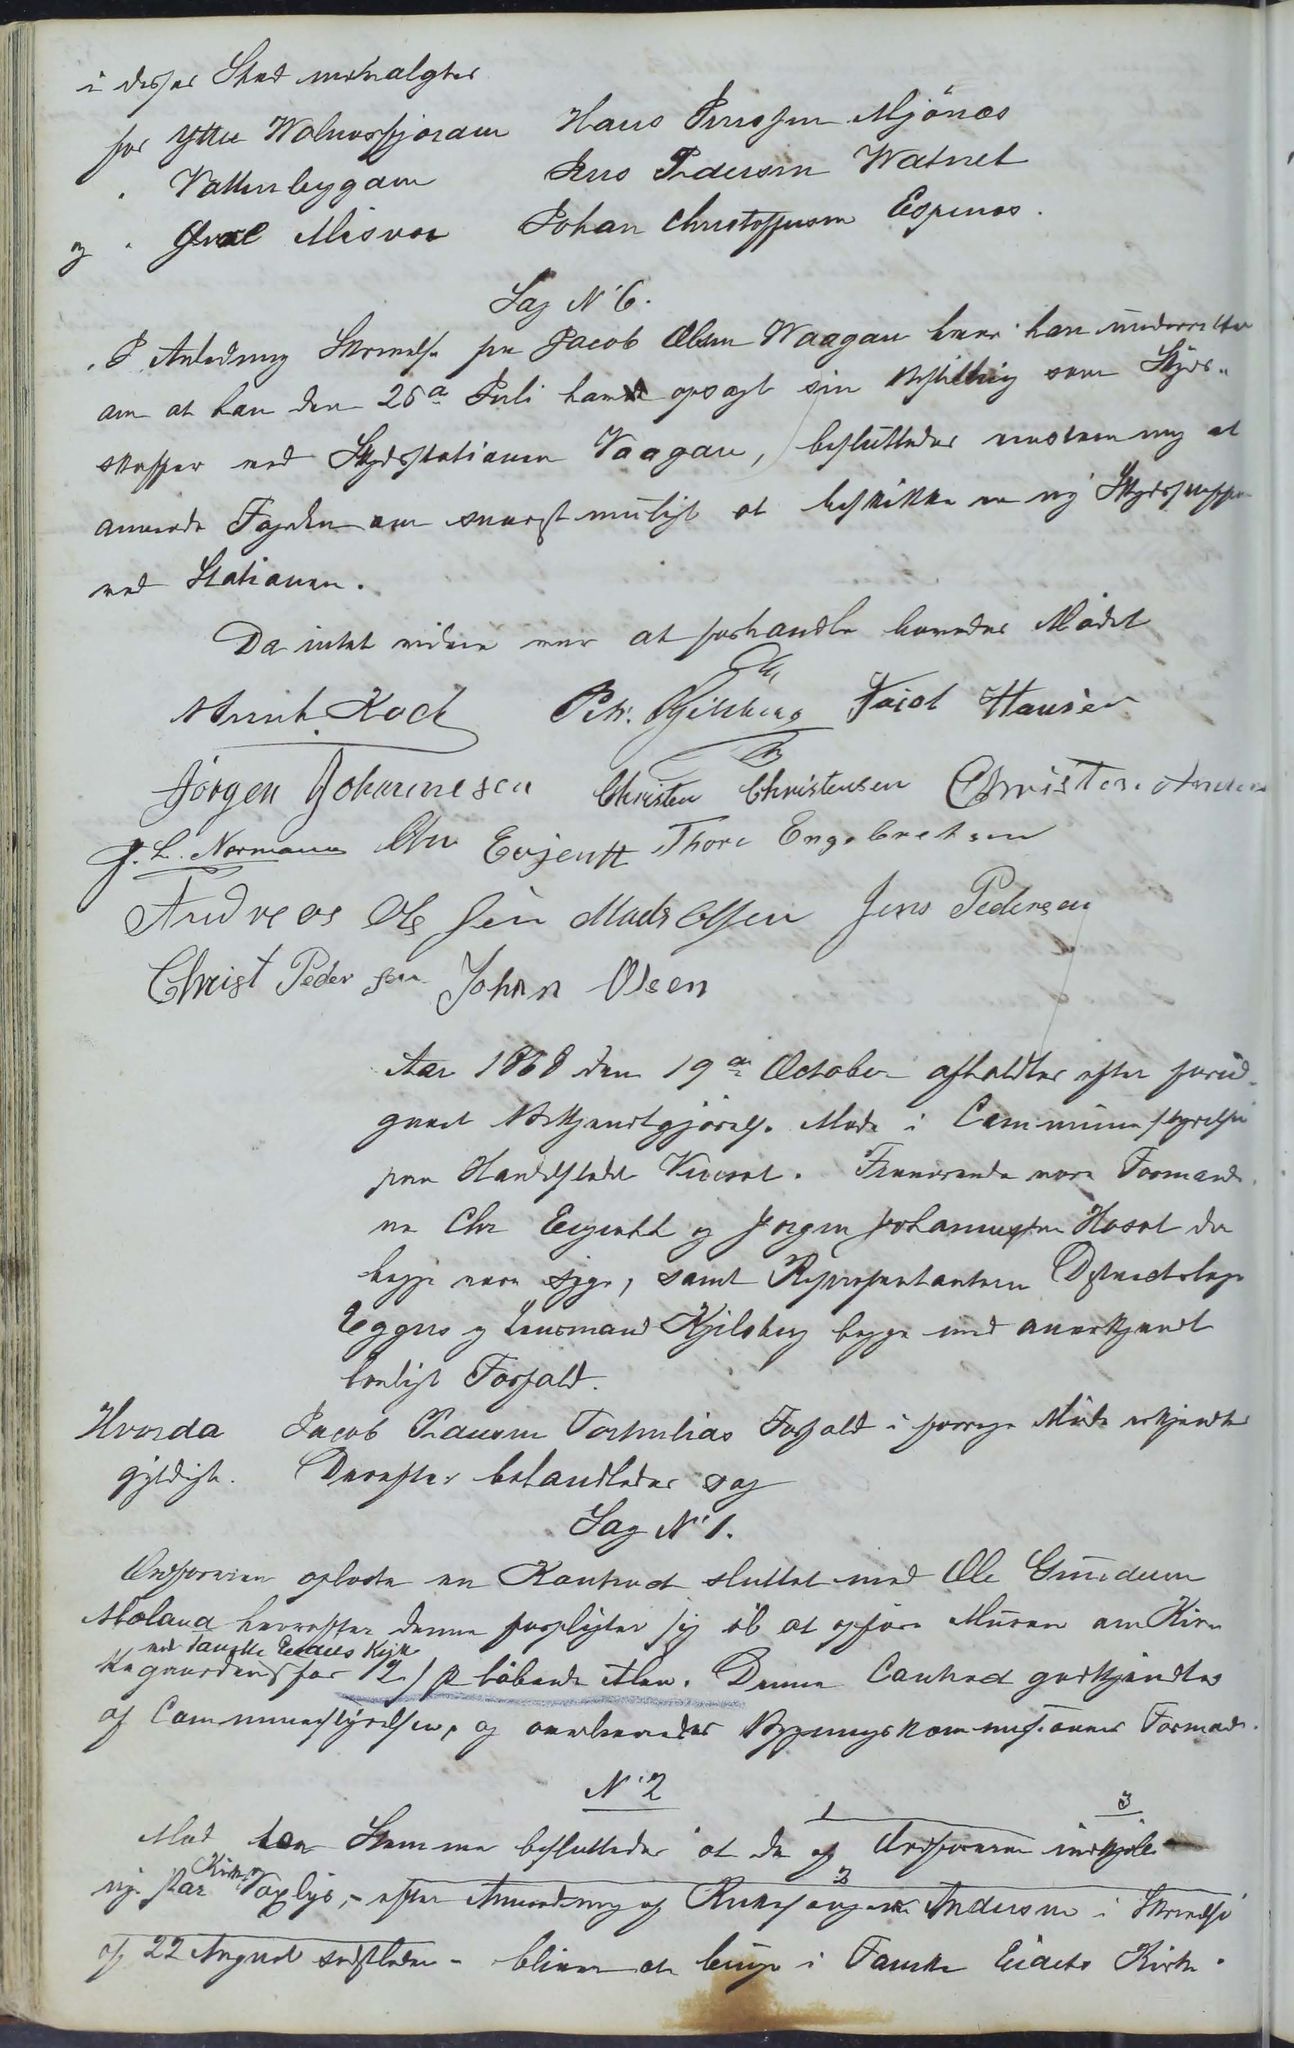 i disses Sted udvalgtes
for Ytre Walnæsfjorden Hans Jenssen Mjönæs
" Vattenbygden Jens Pedersen Watnet
og " Misvær Johan Christoffersen Espenæs.
Sag N° 6.
I Anledning Skrivelse fra Jacob Olsen Waagan hvori han underretter
om at han den 25de Juli havde opsagt sin Bestilling som Skyds-
skaffer ved Skydsstationen Vaagan, besluttedes eenstemmig at
anmode Fogden om snarest muligt at beskikke en ny Skydsskaffer
ved Stationen.
Da intet videre var at forhandle hævedes Mödet
Koch Petr. Kjelsberg Jacob Hansen
Jörgen Johannesen Christen Christensen Christen Anders
J. L. Normann Chr Evjenth Thore Engebretsen
Andreas Olsen Mads Olsen Jens Pedersen
Christ Pedersen Johan Olsen
Aar 1868 den 19de October afholdtes efter forud-
gaaet Bekjendtgjörelse Möde i Communestyrelsen
paa Handelsstedet Venset. Fraværende vare Formænde-
ne Chr Evjenth og Jörgen Johannessen Hoset da
begge vare syge, samt Repræsentanterne Districtslæge
Eggers og Lensmand Kjelsberg begge med anerkjendt
lovligt Forfald.
Hvorda Jacob Pedersen Forfald i forrige Möde erkjendtes
gyldigt. Derefter behandledes sag
Sag N° 1.
Ordföreren oplæste en Kontract sluttet med Ole Gundersen
Moland hvorefter denne forpligter sig til at opföre Muren om Kir-
ved Fauske Eidets Kirke
kegaarden for 2/ pr löbende Alen. Denne Contract godkjendtes
af Communestyrelsen, og Bygningskommissionens Formand.
N° 2
1 3
Med Stemmer besluttedes at de af Ordföreren indkjöbte
Kirke 2
nye Par Voxlys, - efter Anmodning af Kirkesanger Andersen i Skrivelse
af 22 August sidstleden - bliver at bruge i Fauske Eidets Kirke.